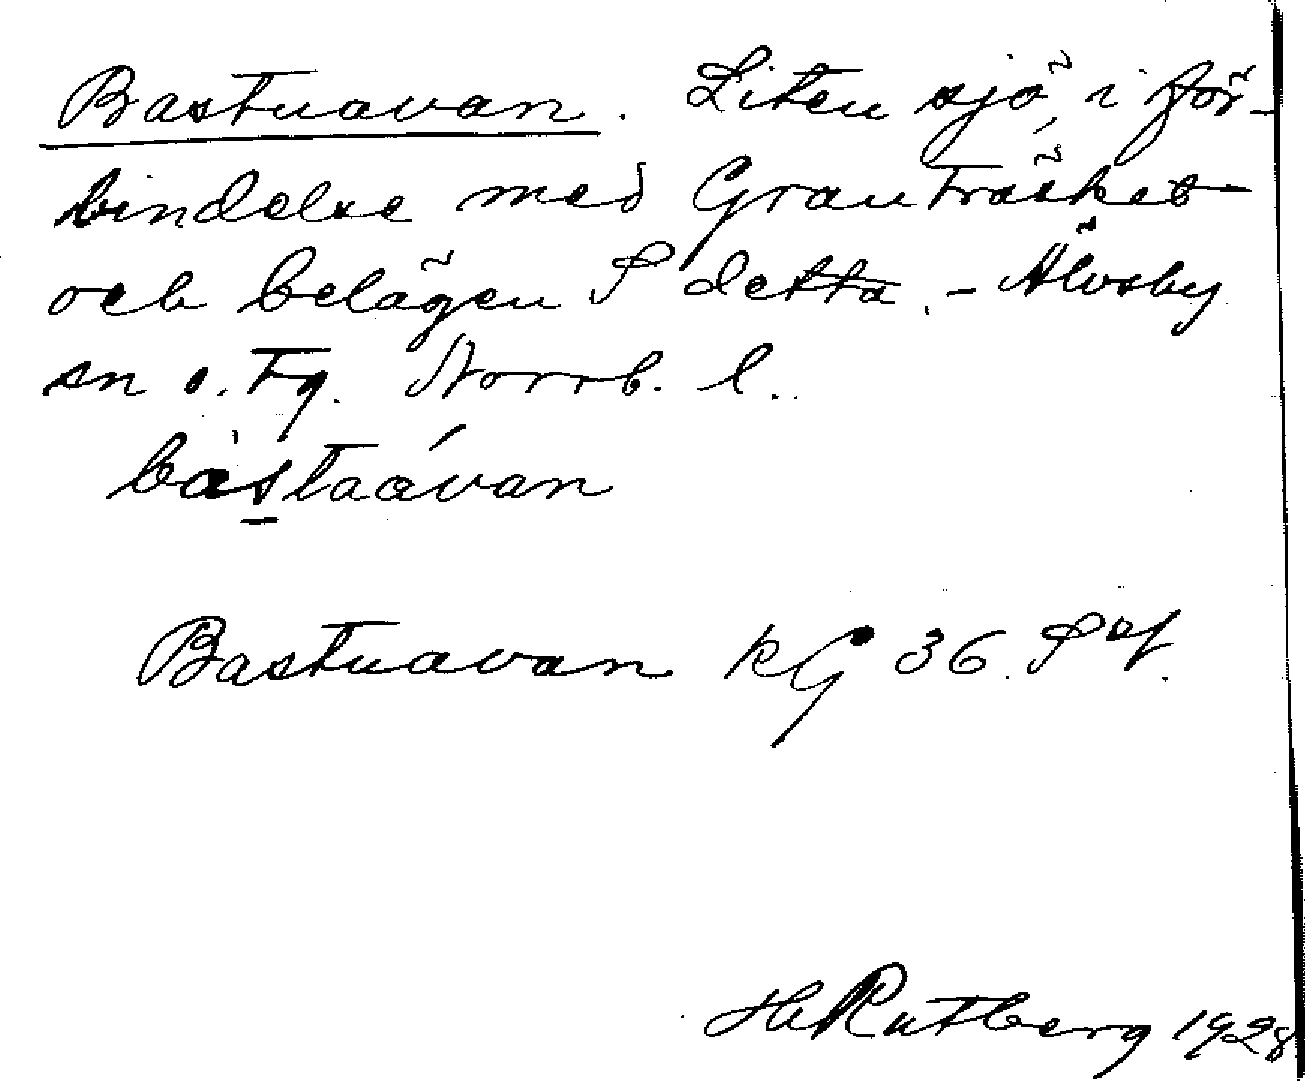 Bastuavan. Liten sjö, i för-
bindelse med Granträsket
och belägen S detta. - Älvsby
sn o. tg. Norrb. l.
bàstaávan
Bastuavan kG 36 S of.
H Rutberg 1928